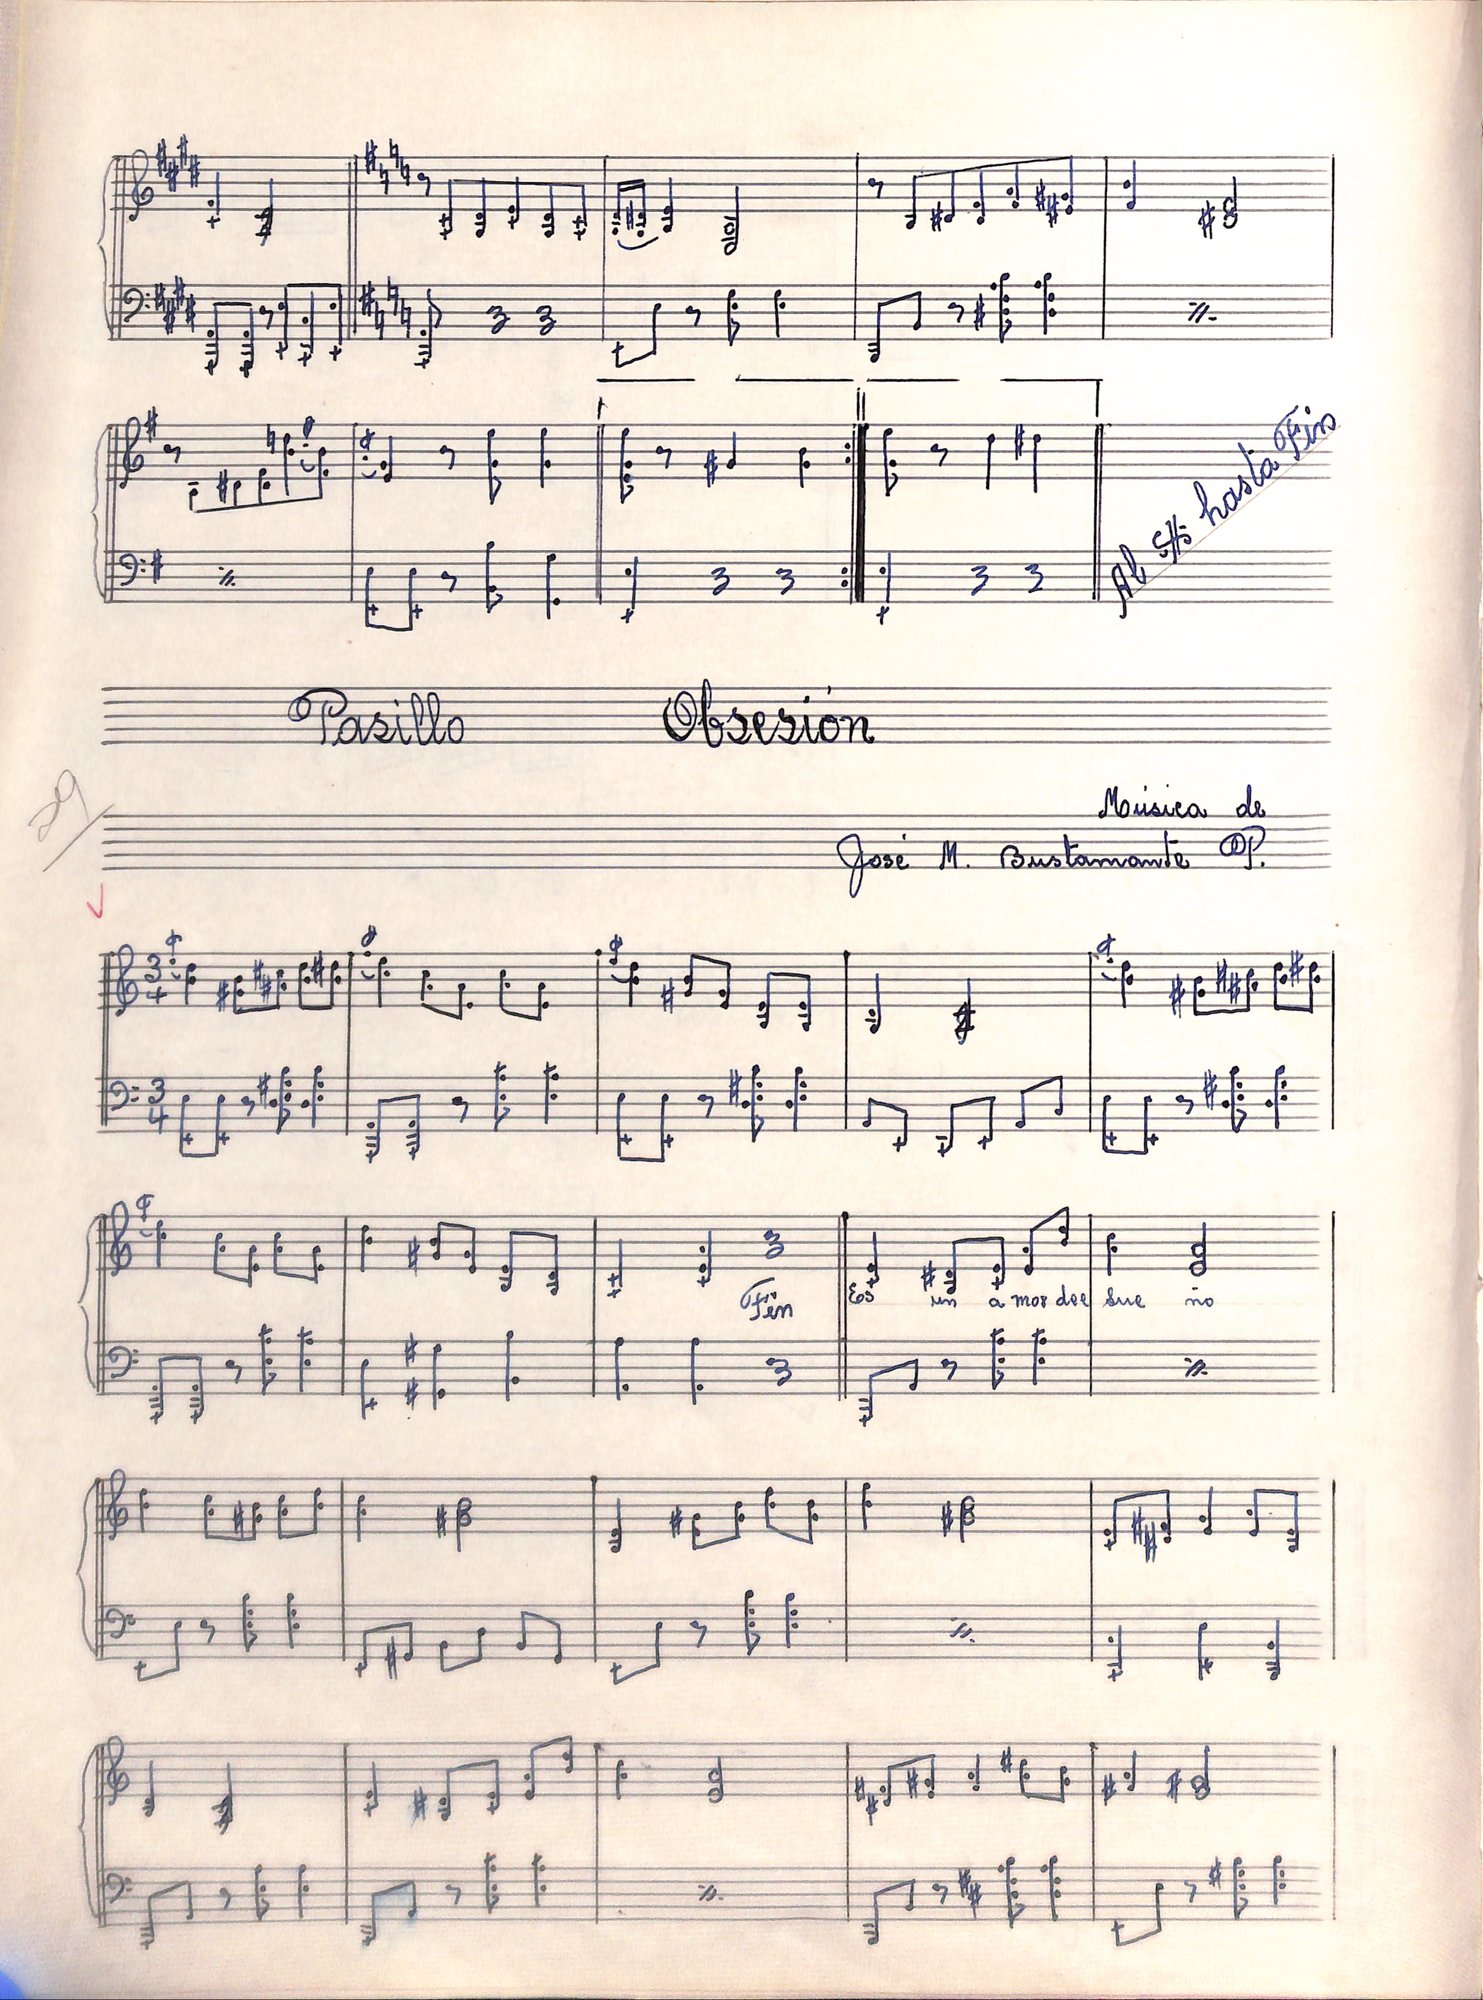 Al 𝄋 hasta Fin
Pasillo Obsesión
29/
Música de
José M. Bustamante P.
3/4
3/4
Fin
Es un a mor de e sue ño